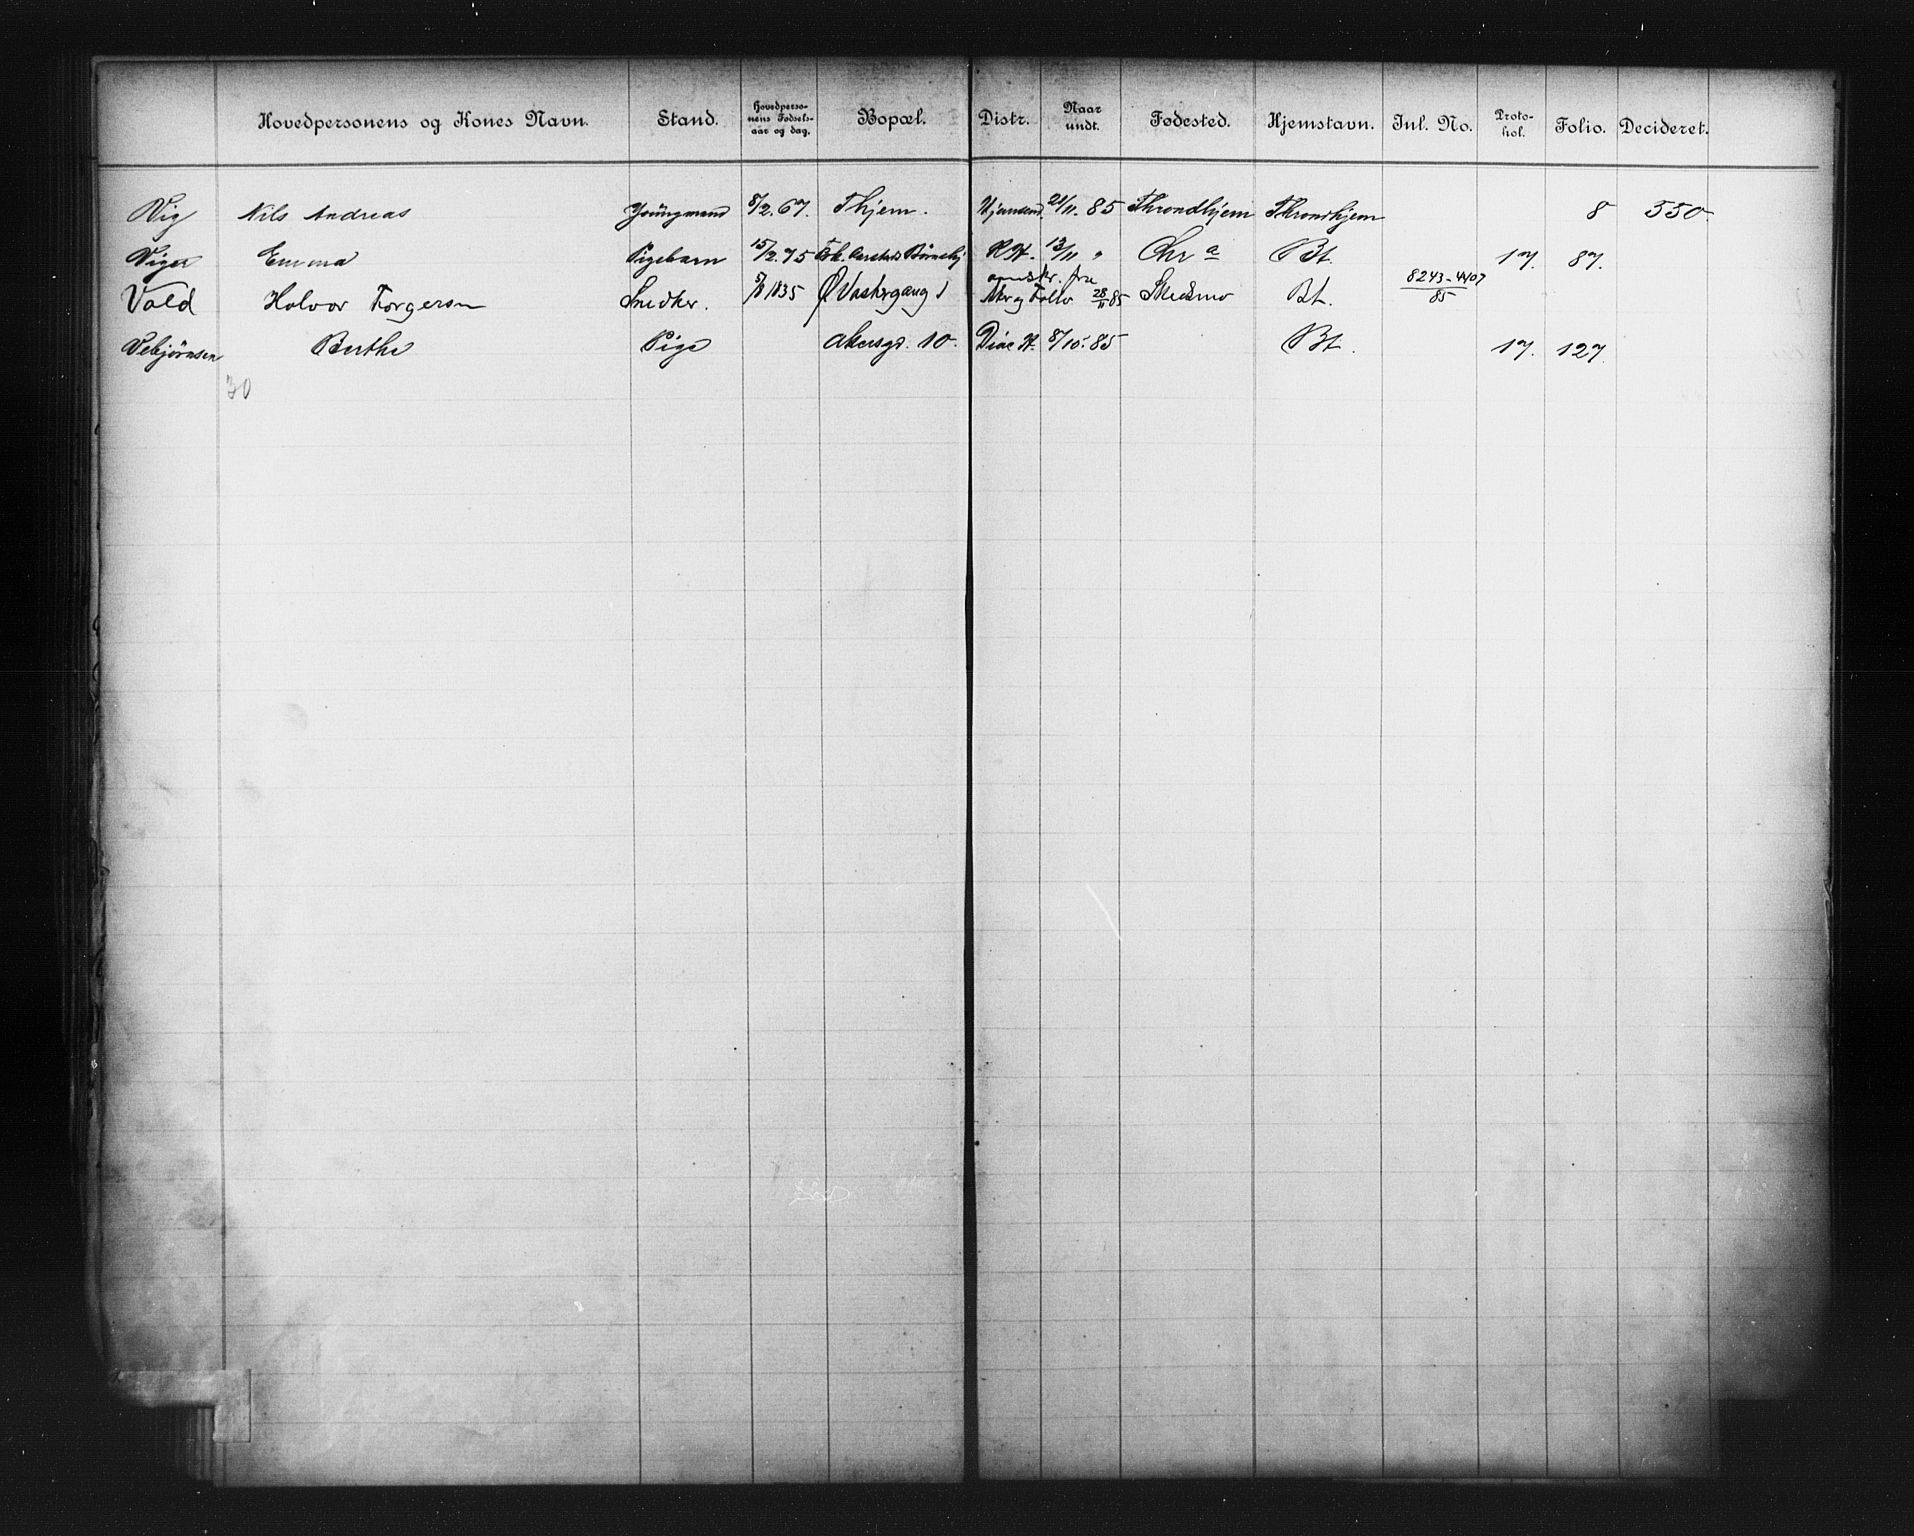 Hovedpersonens og Kones Navn. Stand. Hovedperso-nens Fødsels-aar og dag. Bopæl. Distr. Naar undt. Fødested. Hjemstavn. Inl. No. Proto-kol. Folio. Decideret.
Vig Nils Andreas Youngmand 8/2.67. Thjem. 21/11.85 Throndhjem Throndhjem 8 550.
Viger Emma Pigebarn 15/2.75 R.H. 13/11 " Chr a Bt. 17. 87.
omskr. fra
Vold Halvor Torgersen Snedker. 5/8 1835 Ø Vaskergang 1 Aker og Follo 28/11 85 Skedsmo Bt. 8243-4407/85
Vebjørnsen Berthe Pige Akersgd. 10. Diac H. 8/10.85 Bt. 17. 127.
30